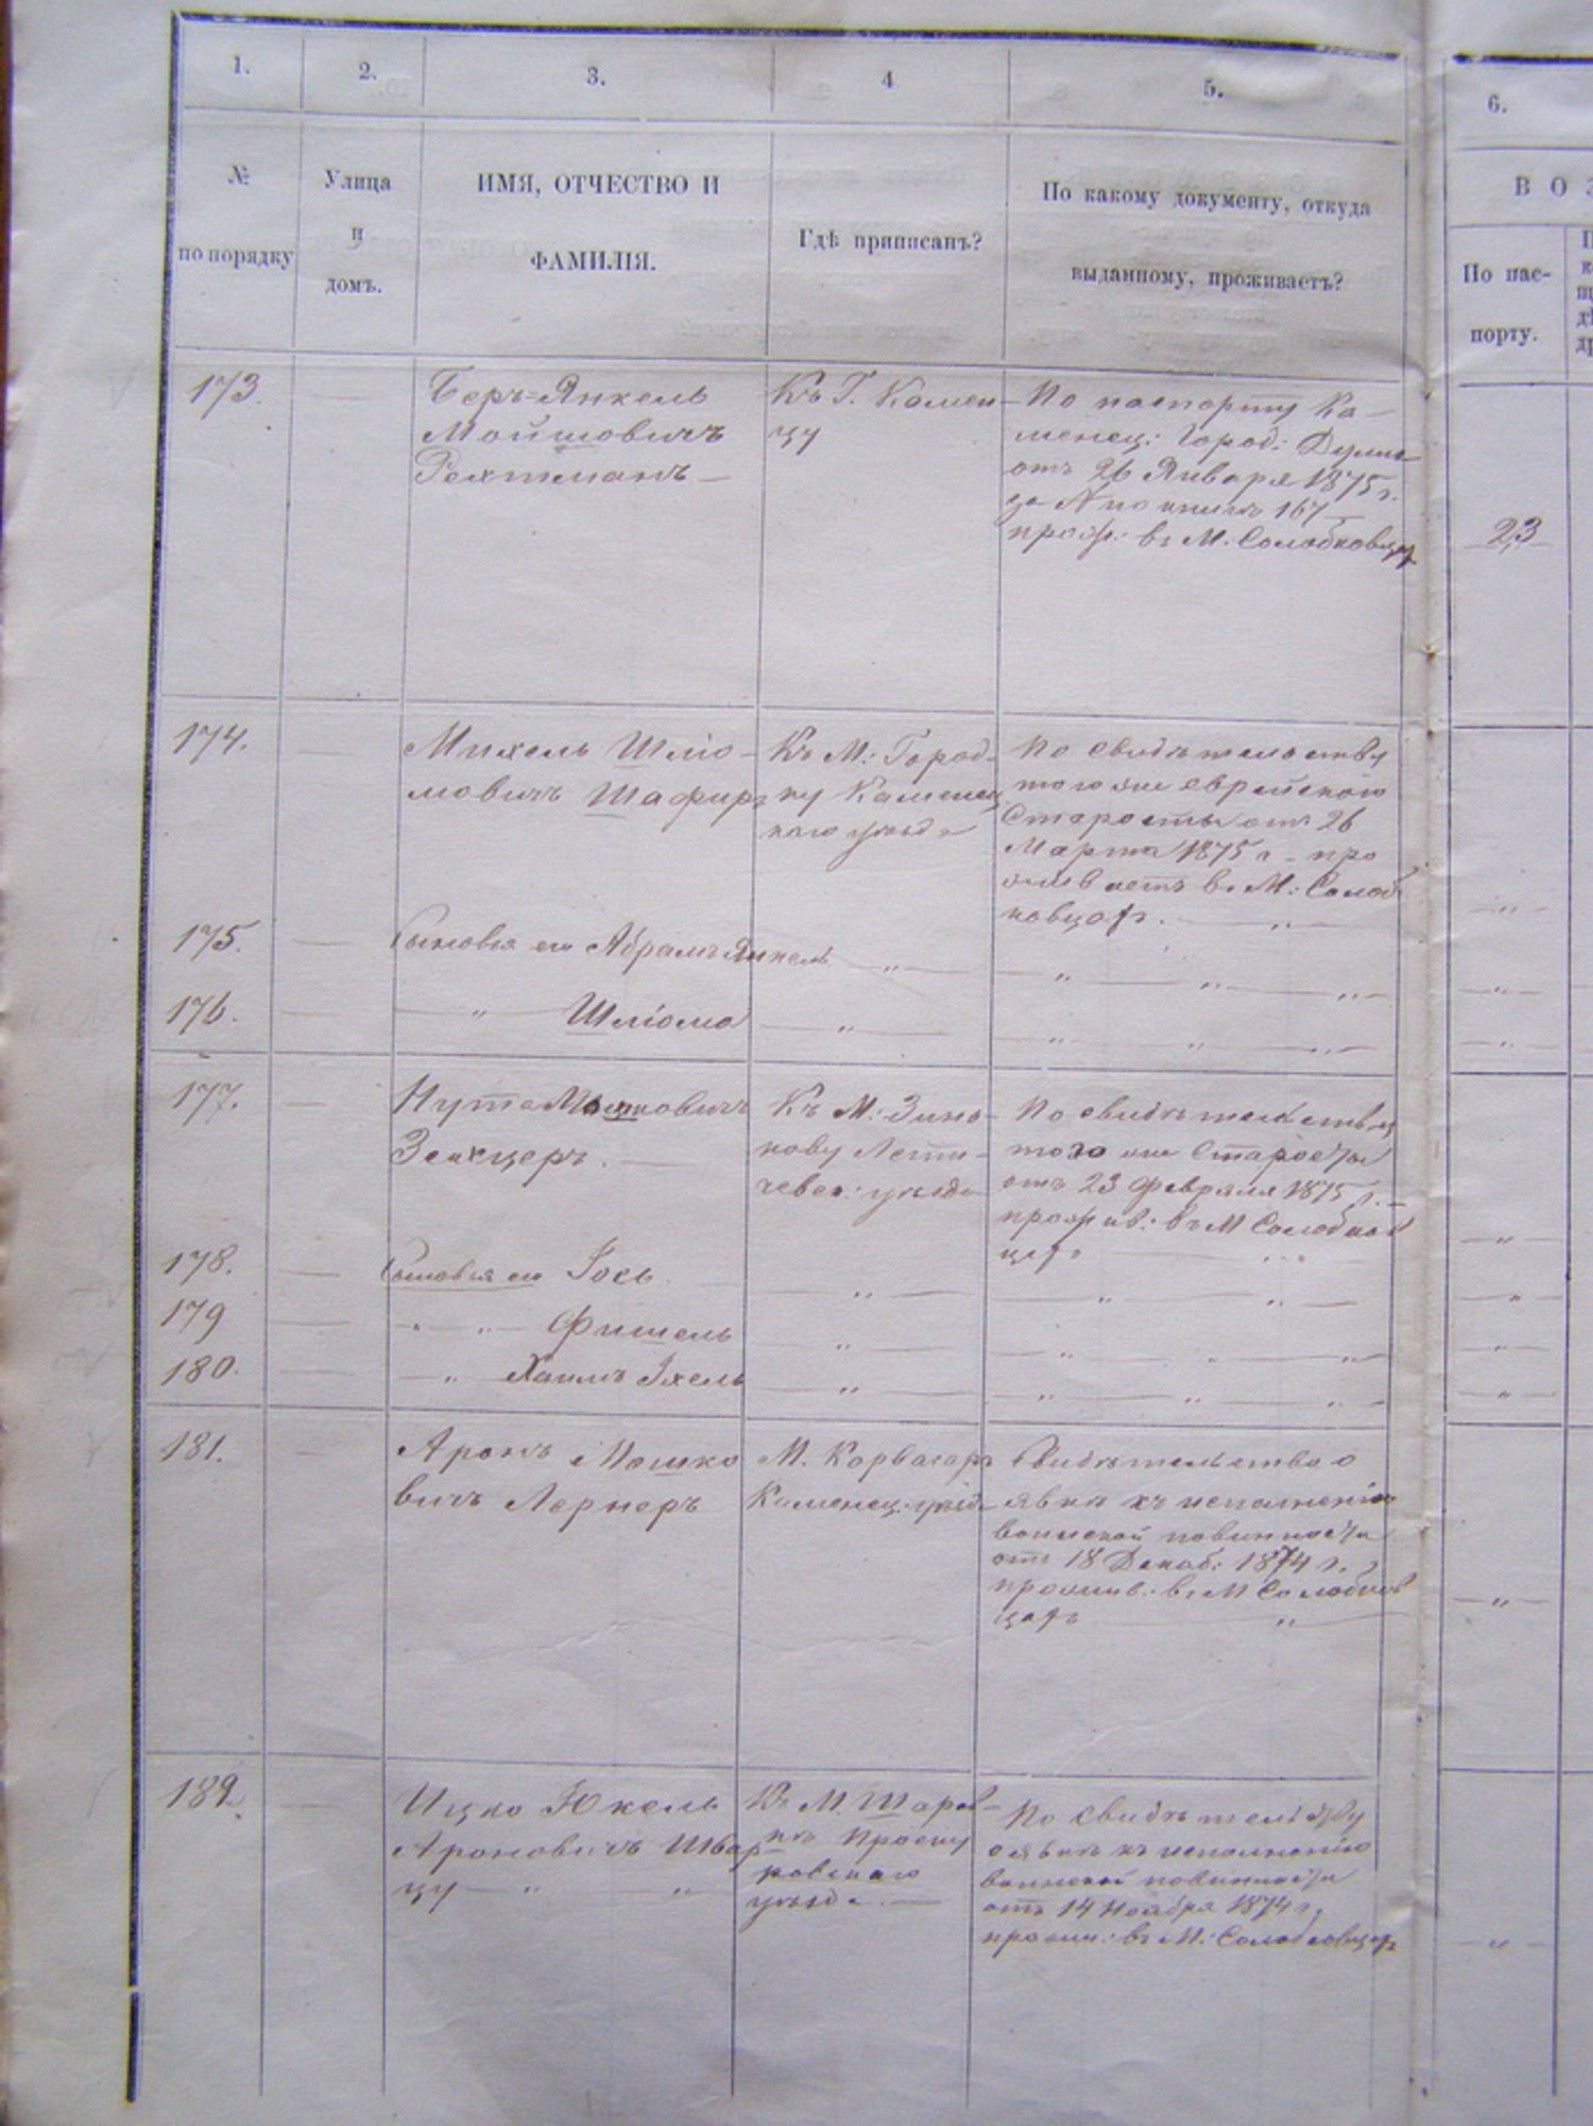 1. 2. 3. 4 5. 6.
№
по порядку
Улица
и
домъ.
ИМЯ, ОТЧЕСТВО И
ФАМИЛІЯ.
Гдѣ приписанъ?
По какому документу, откуда
выданному, проживаетъ?
В О З
По пас-
порту.
173.
Беръ=Янкель
Мойшовичъ
Рехтманъ —
Къ Г. Камен-
цу
По паспорту Ка-
менец: Город: Думы
отъ 26 Января 1875 г.
за № по книгѣ 167
прож: въ М. Солобковцахъ
23
174.
Михель Шліо-
мовичъ Шафиръ
Къ М: Город-
ку Каменец
каго уѣзда
По свидѣтельству
того же еврейского
Старосты отъ 26
Марта 1875 г - про
живаетъ въ М: Солоб
ковцахъ. — „
175.
Сыновья его Абрамъ Янкель
— „ —
— „ — „ — „ —
— „ —
176.
— „ — Шліома
— „ —
— „ — „ — „ —
— „ —
177.
Нута Мошковичъ
Зекцеръ. —
Къ М: Зинь-
кову Лети-
чевск: уѣзда
По свидѣтельству
того же Старосты
отъ 23 Февраля 1875 г. —
прожив: въ М Солобков
цахъ — „
— „ —
178.
Сыновья его Іось
— „ —
— „ — „ —
— „ —
179
— „ — Фишель
— „ —
— „ — „ — „ —
— „ —
180.
— „ Хаимъ Іхель
— „ —
— „ — „ — „ —
— „ —
181.
Аронъ Мошко
вичъ Лернеръ
М. Корвасары
Каменец. уѣзда
Свидѣтельство о
явкѣ къ исполненію
воинской повинности
отъ 18 Декаб: 1874 г.
прожив: въ М Солобков
цахъ — „ —
— „ —
182.
Ицко Юкель
Ароновичъ Швар-
цу — „ — „
Къ М. Шаров-
кѣ Проску
ровскаго
уѣзда. —
По свидѣтельству
о явкѣ къ исполненію
воинской повинности
отъ 14 Ноября 1874 г.
прожи: въ М: Солобковцахъ
— „ —